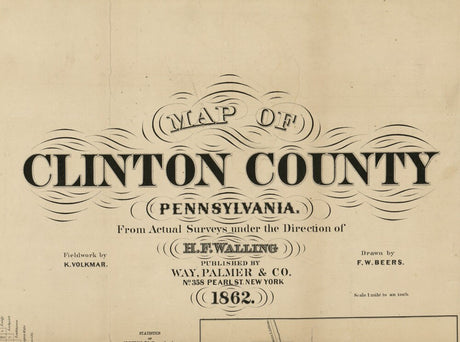 MAP OF
CLINTON COUNTY
PENNSYLVANIA.
From Actual Surveys under the Direction of
H.F. WALLING
Fieldwork by
K. VOLKMAR.
PUBLISHED BY
WAY, PALMER & CO.
No 358 PEARL ST. NEW YORK
1862.
Drawn by
F. W. BEERS.
Scale 1 mile to an inch.
STATISTICS